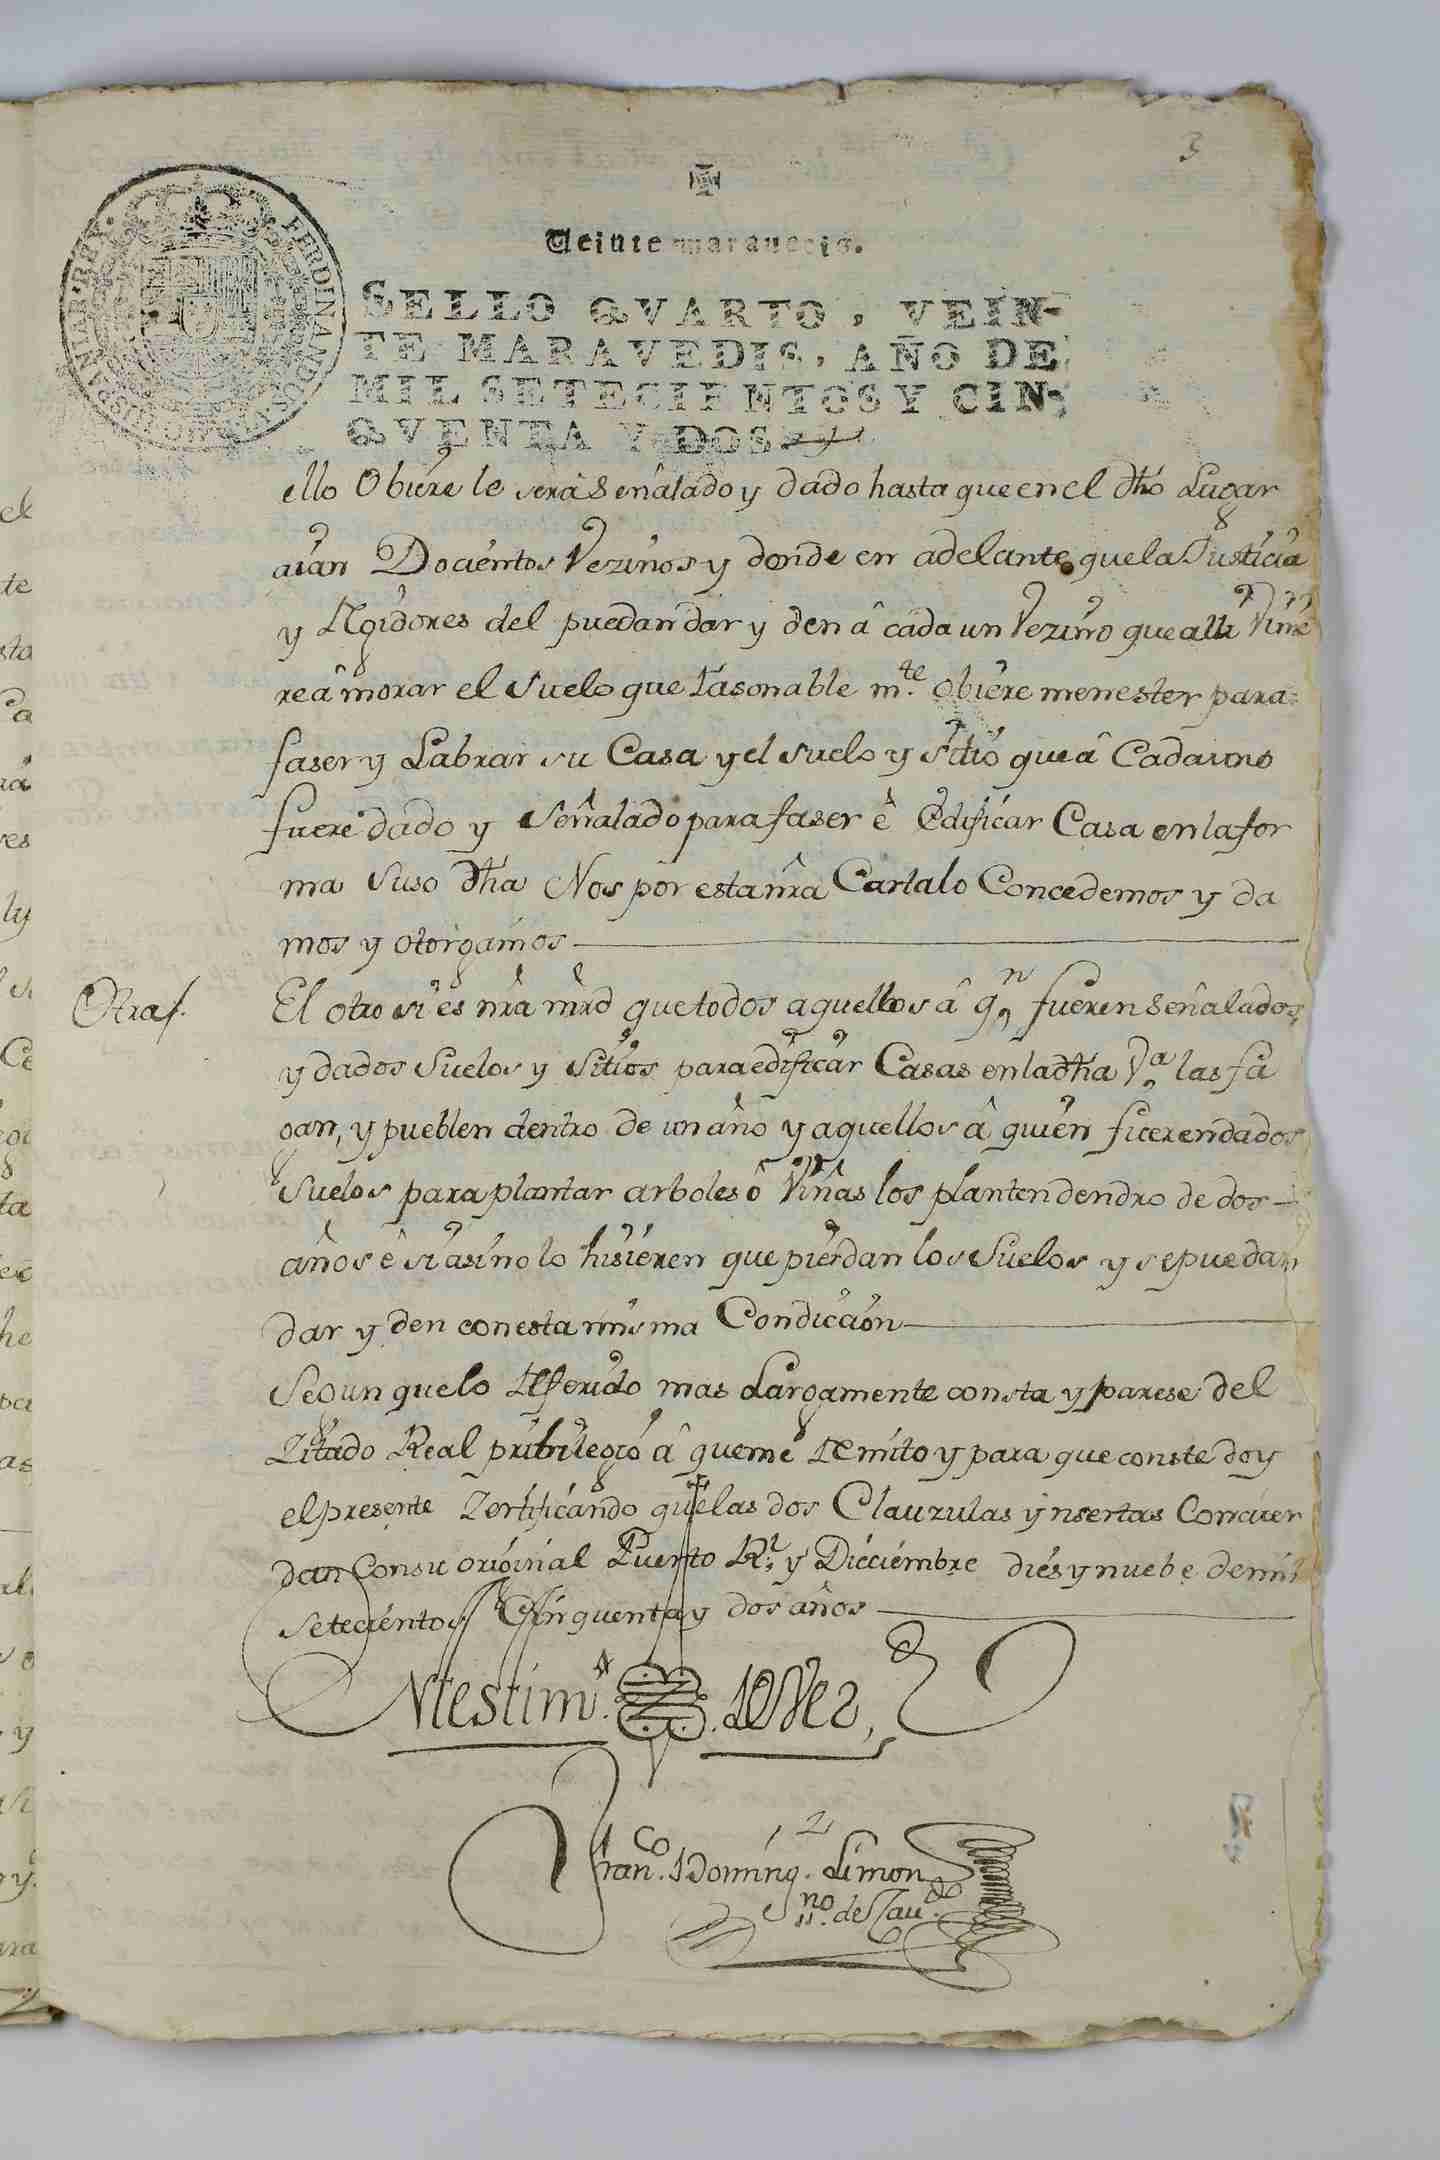 3
Veinte maravedis.
SELLO QVARTO, VEIN-
TE MARAVEDIS, AÑO DE
MIL SETECIENTOS Y CIN-
QVENTA Y DOS
FERDINANDUS HISPANIAR REX
ello Obiere le será Señalado y dado hasta que en el dhô Lugar
aian Docientos Vezinos y donde en adelante que la Justicia
y Rexidores del puedan dar y den â cada un Vezino que alli Vinie
re â morar el suelo que rasonable m.te obiere menester para
faser y Labrar su Casa y el suelo y sitio que â Cada uno
fuere dado y Señalado para faser ê Edificar Casa en la for
ma Suso dhâ Nos por esta nrâ Carta lo Concedemos y da
mos y otorgamos
Otra/.
El otro si es nrâ mrd que todos aquellos â q.n fueren señalados,
y dados Suelos y Sitios para edificar Casas en la dhâ V.a las fa
gan, y pueblen dentro de un año y aquellos â quien fueren dados
Suelos para plantar arboles ô Viñas los planten dendro de dos
años ê si asi no lo hisieren que pierdan los Suelos y se puedan
dar y den con esta misma Condicion
Segun que lo Referido mas Largamente consta y parese del
Zitado Real pribilegio â que me Remito y para que conste doy
el presente Zertificando que las dos Clauzulas ynsertas Concuer
dan Con su original Puerto R.l y Dicciembre dies y nuebe de mil
setecientos Cinquenta y dos años
En testim.o de Ver,
Fran.co Doming.z Limon
SS.no de Cav.do